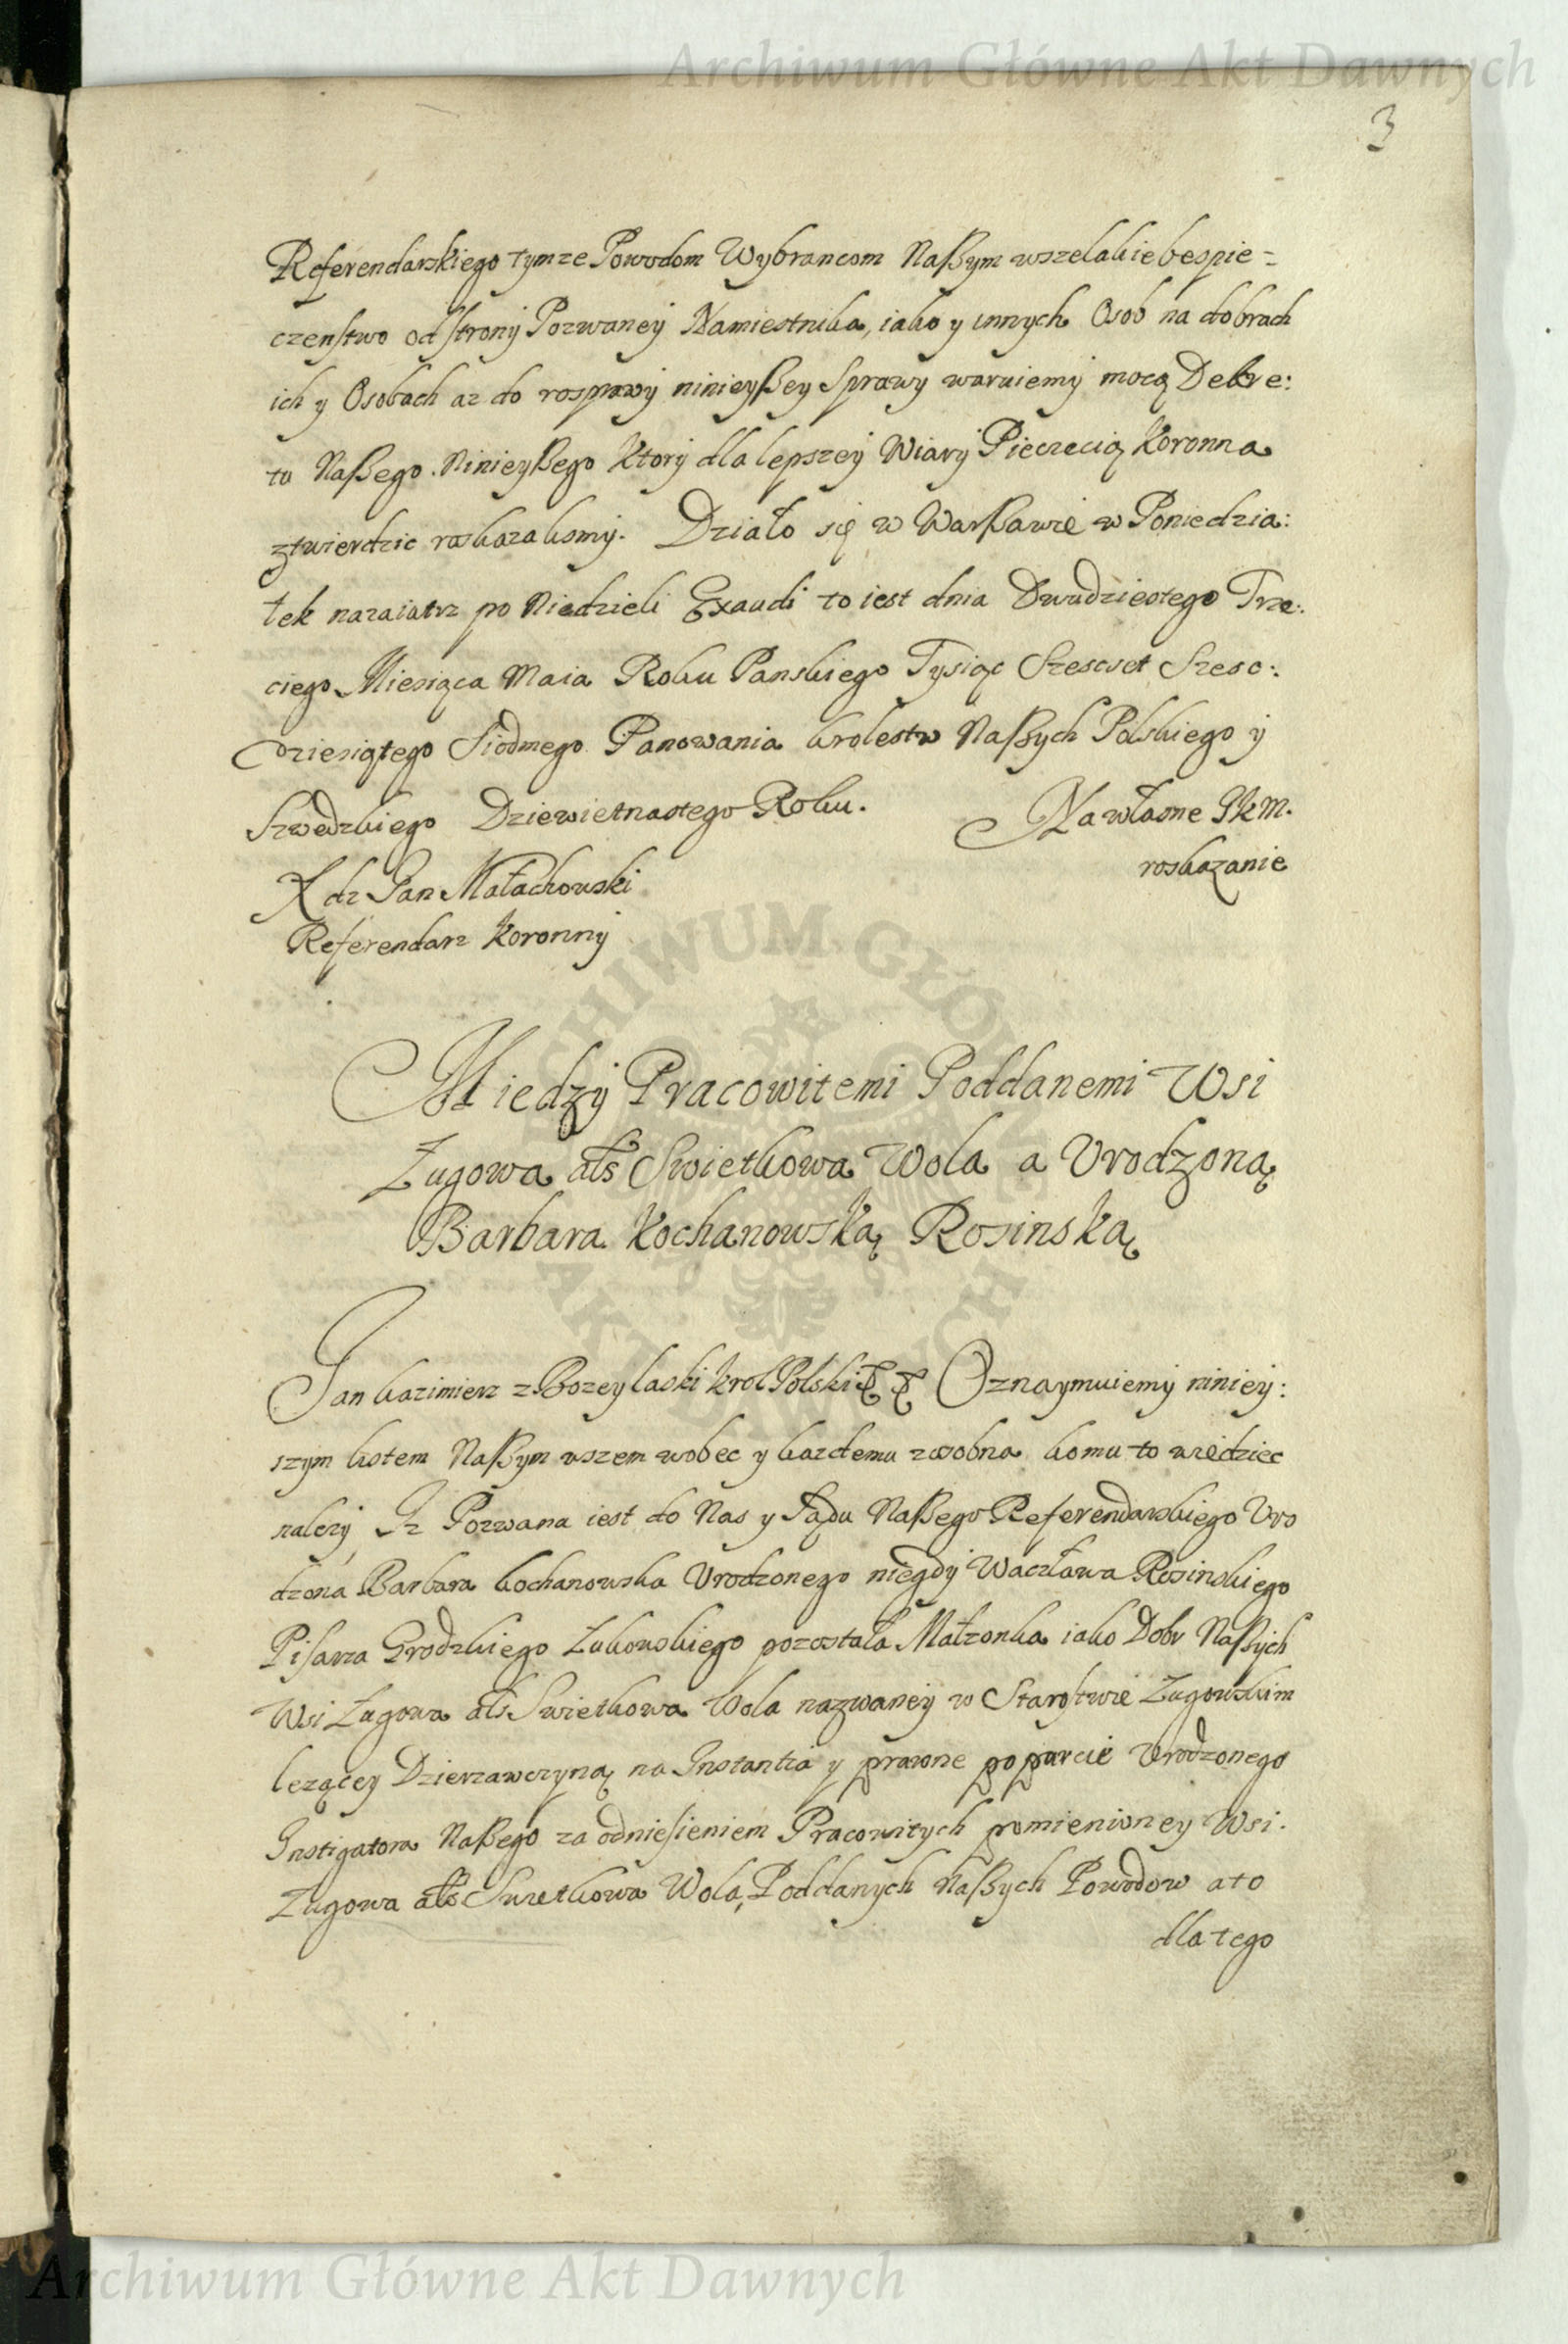 Archiwum Główne Akt Dawnych
3
Referendarskiego tymze Powodom Wybrancom Naßym wszelakie bespie=
czenstwo od strony Pozwaney Namiestnika, iako y innych Osob na dobrach
ich y Osobach az do rosprawy ninieyßey Sprawy waruiemy mocą Dekre:
tu Naßego Ninieyßego ktory dla lepszey Wiary Pieczecią Koronna
ztwierdzic roskazalismy. Działo się w Warßawie w Poniedzia:
łek nazaiutrz po Niedzieli Exaudi to iest dnia Dwudziestego Trze:
ciego Miesiąca Maia Roku Panskiego Tysiąc Szescset Szesc:
dziesiątego Siodmego Panowania krolestw Naßych Polskiego y
Szwedzkiego Dziewietnastego Roku. Na własne JKM.
roskazanie
X dz Jan Małachowski
Referendarz Koronny
ARCHIWUM GŁÓWNE AKT DAWNYCH
Miedzy Pracowitemi Poddanemi Wsi
Zugowa als Swietkowa Wola a Vrodzoną
Barbara Kochanowską Rosinską
Jan kazimierz z Bozey laski krol Polski Oznaymuiemy niniey:
szym listem Naßym wszem wobec y kazdemu zosobna komu to wiedziec
nalezy Iz Pozwana iest do Nas y Sądu Naßego Referendarskiego Vro
dzona Barbara kochanowska Vrodzonego niegdy Wacława Rosinskiego
Pisarza Grodzkiego Łukowskiego pozostała Małzonka iako Dobr Naßych
Wsi Zugowa als Swietkowa Wola nazwaney w Starostwie Zugowskim
lezącey Dzierzawczyną na Instantia y prawne poparcie Vrodzonego
Instigatora Naßego za odniesieniem Pracowitych pomienioney Wsi.
Zugowa als Swietkowa Wola, Poddanych Naßych Powodow a to
dla tego
Archiwum Główne Akt Dawnych